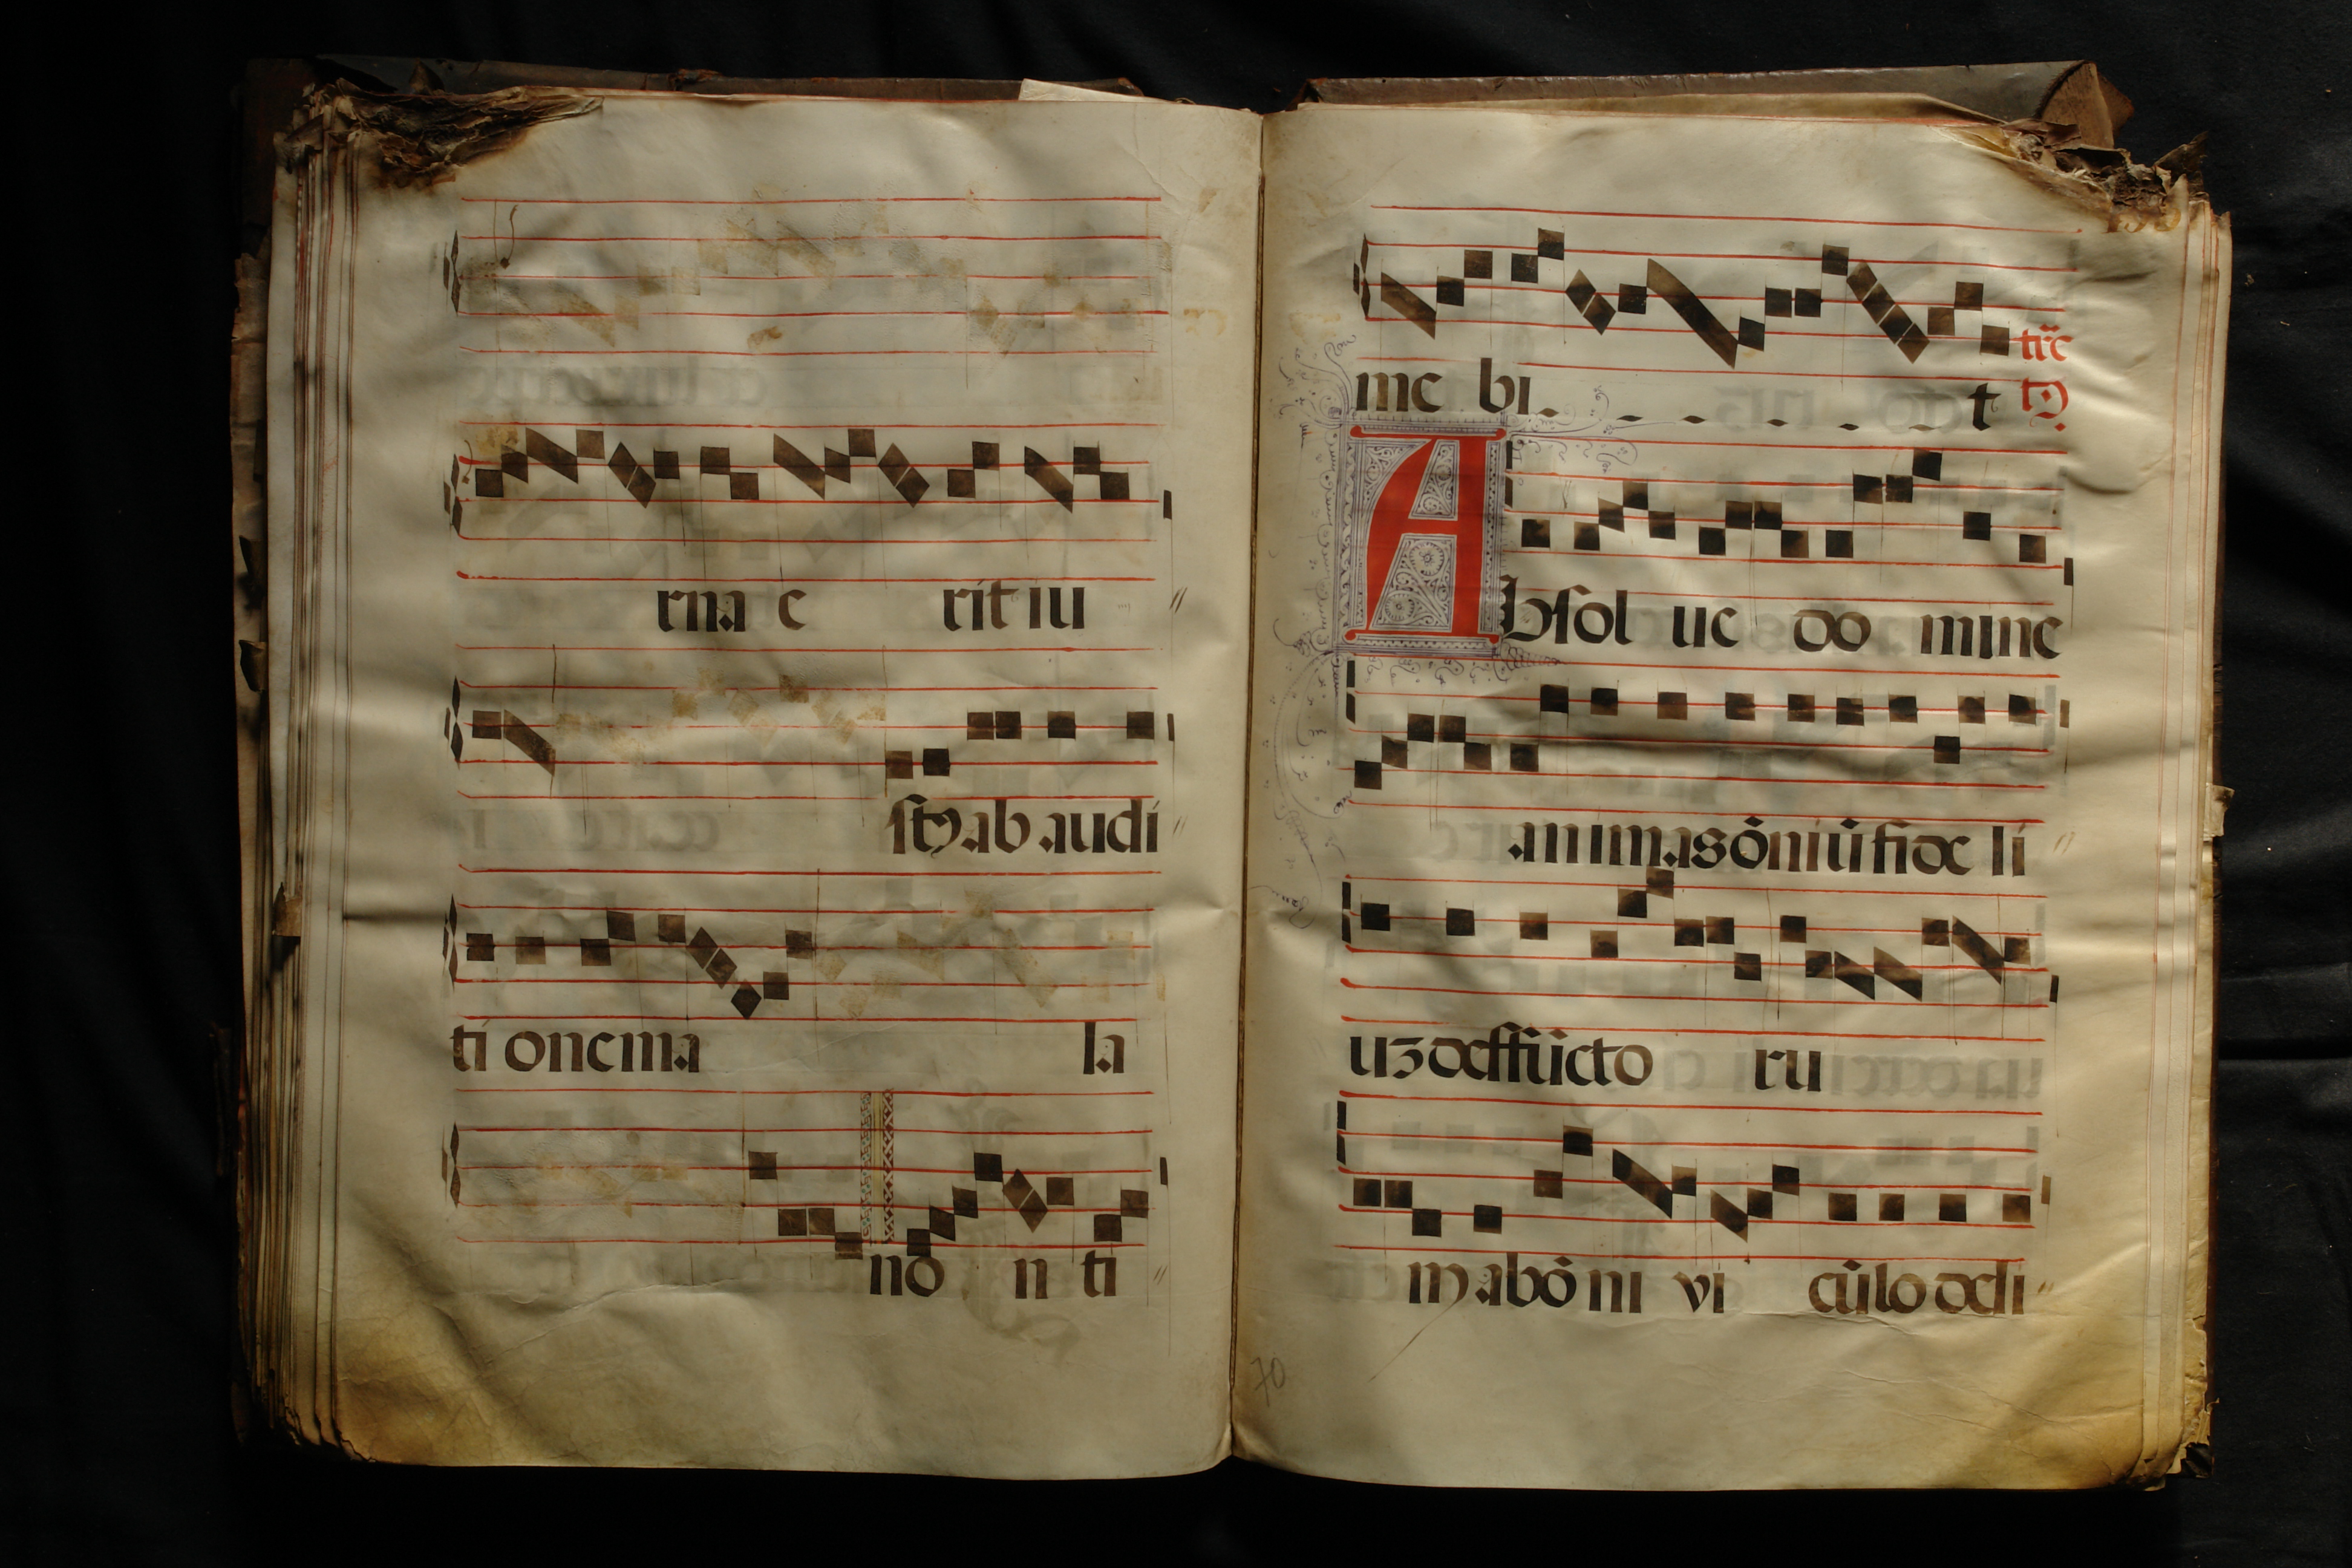 rna e rit iu
stꝰ ab audi
ti one ma la
no n ti
me bi t
trc̃
D.
Absol ue do mine
animas õniũ fide li
uʒ deffũcto ru
m ab õ ni vi cũlo deli
70